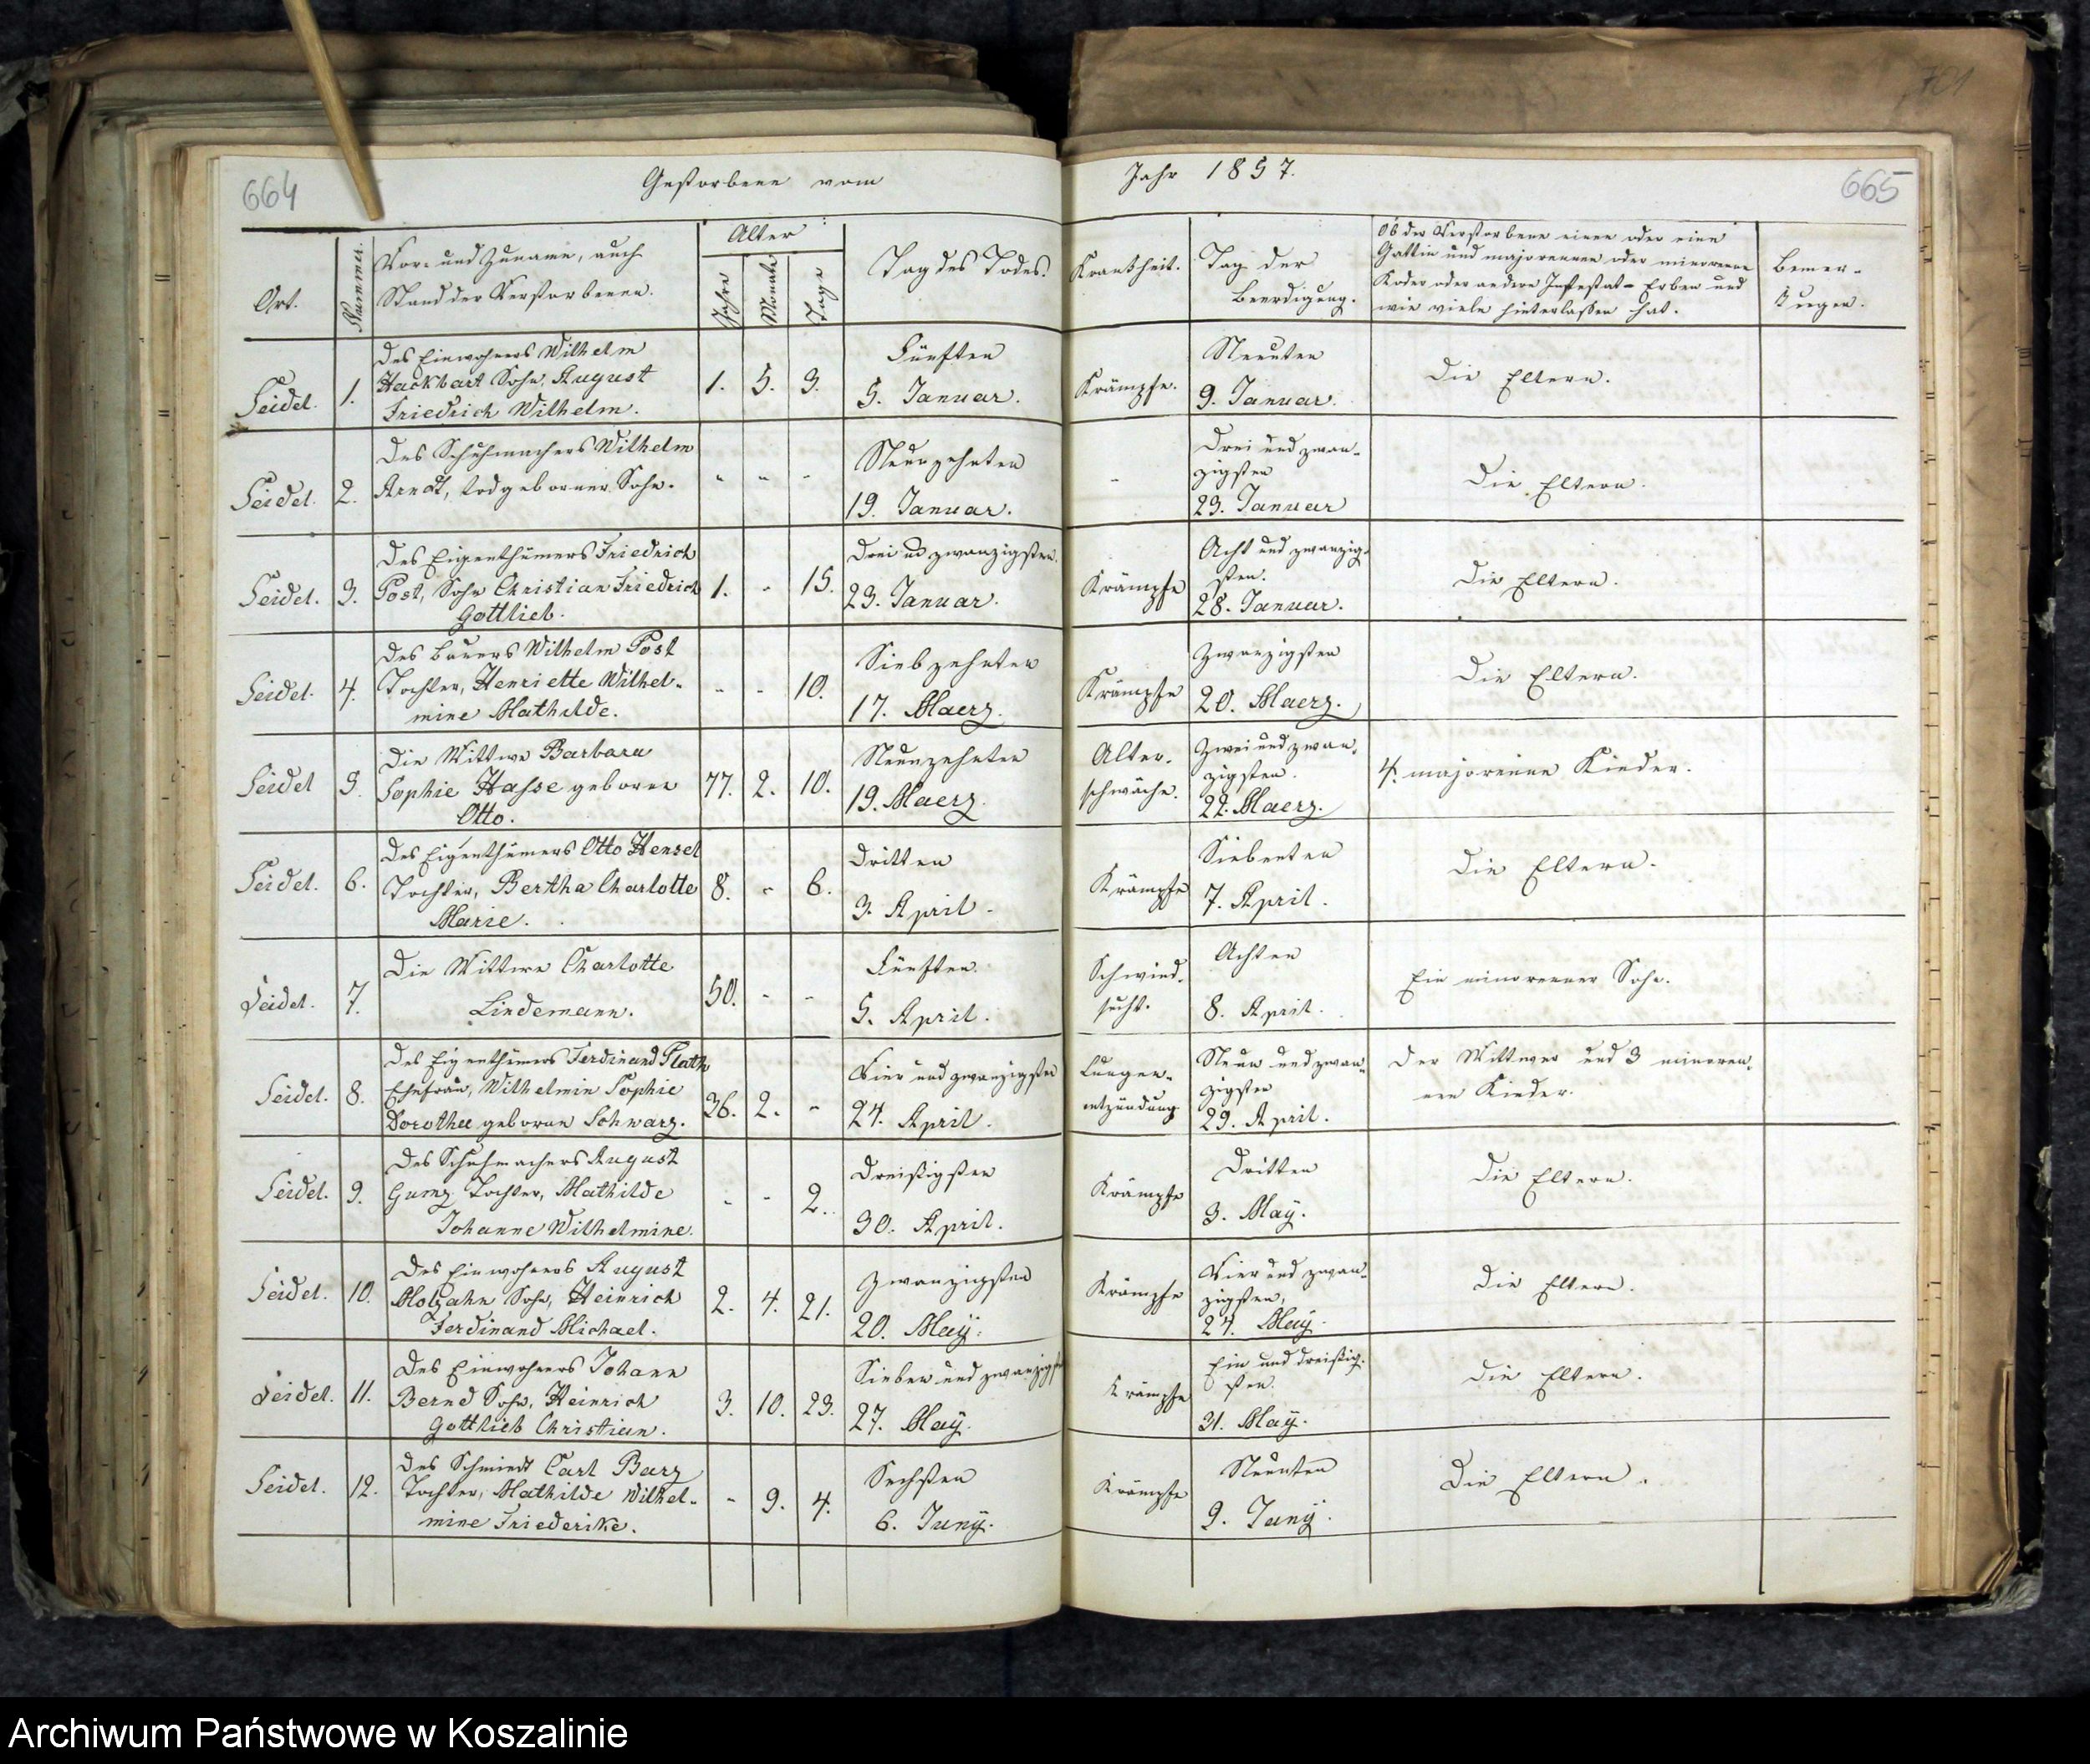 664
Gestorbene vom
Ort.
Nummer.
Vor- und Zuname, auch
Stand der Verstorbenen.
Alter
Jahre
Monate
Tage
Tag des Todes.
Seidel.
1.
Des Einwohners Wilhelm
Hackbart Sohn, August
Friedrich Wilhelm.
1.
5.
3.
Fünften
5. Januar.
Seidel.
2.
Des Schuhmachers Wilhelm
Arndt, todgeborner Sohn.
Neunzehnten
19. Januar.
Seidel.
3.
Des Eigenthümers Friedrich
Post, Sohn Christian Friedrich
Gottlieb.
1.
-
15.
Drei und zwanzigsten.
23. Januar.
Seidel.
4.
Des Bauers Wilhelm Post
Tochter, Henriette Wilhel-
mine Mathilde.
-
-
10.
Siebzehnten
17. Maerz.
Seidel
5.
Die Wittwe Barbara
Sophie Hasse geborne
Otto.
77.
2.
10.
Neunzehnten
19. Maerz.
Seidel.
6.
Des Eigenthümers Otto Hensel
Tochter, Bertha Charlotte
Marie.
8.
-
6.
Dritten
3. April.
Seidel.
7.
Die Wittwe Charlotte
Lindemann.
50.
-
-
Fünften.
5. April.
Seidel.
8.
Des Eigenthümers Ferdinand Plath
Ehefrau, Wilhelmin Sophie
Dorothee geborne Schwarz.
36.
2.
-
Vier und zwanzigsten
24. April.
Seidel.
9.
Des Schuhmachers August
Gumz Tochter, Mathilde
Johanne Wilhelmine.
-
-
2.
Dreißigsten
30. April.
Seidel.
10.
Des Einwohners August
Molzahn Sohn, Heinrich
Ferdinand Michael.
2.
4.
21.
Zwanzigsten
20. Maÿ.
Seidel.
11.
Des Einwohners Johann
Bernd Sohn, Heinrich
Gottlieb Christian.
3.
10.
23.
Sieben und zwanzigsten
27. Maÿ.
Seidel.
12.
Des Schmiedt Carl Barz
Tochter, Mathilde Wilhel-
mine Friederike.
-
9.
4.
Sechsten
6. Junÿ.
701
Jahr 1857.
665
Krankheit.
Tag der
Beerdigung.
Ob der Verstorbene einen oder eine
Gattin und majorennen oder minorenne
Kinder oder andere Intestat-Erben und
wie viele hinterlaßen hat.
Bemer-
kungen.
Krämpfe.
Neunten
9. Januar.
Die Eltern.
-
Drei und zwan-
zigsten
23. Januar
Die Eltern.
Krämpfe
Acht und zwanzig-
sten.
28. Januar.
Die Eltern.
Krämpfe
Zwanzigsten
20. Maerz.
Die Eltern.
Alter-
schwäche.
Zwei und zwan-
zigsten.
22. Maerz.
4. majorenne Kinder.
Krämpfe
Siebenten
7. April.
Die Eltern.
Schwind-
sucht.
Achten
8. April.
Ein minorenner Sohn.
Lungen-
entzündung
Neun und zwan-
zigsten
29. April.
Der Wittwer und 3 minoren-
nen Kinder.
Krämpfe
Dritten
3. Maÿ.
Die Eltern.
Krämpfe
Vier und zwan-
zigsten,
24. Maÿ.
Die Eltern.
Krämpfe
Ein und dreißig-
sten.
31. Maÿ.
Die Eltern.
Krämpfe
Neunten
9. Junÿ.
Die Eltern.
Archiwum Państwowe w Koszalinie